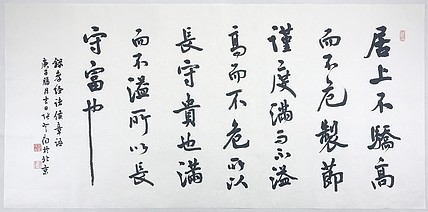 居上不驕高
而不危製節
謹度滿而不溢
高而不危所以
長守貴也滿
而不溢所以長
守富也
錄孝經諸侯章語
庚子 月 日 於北京